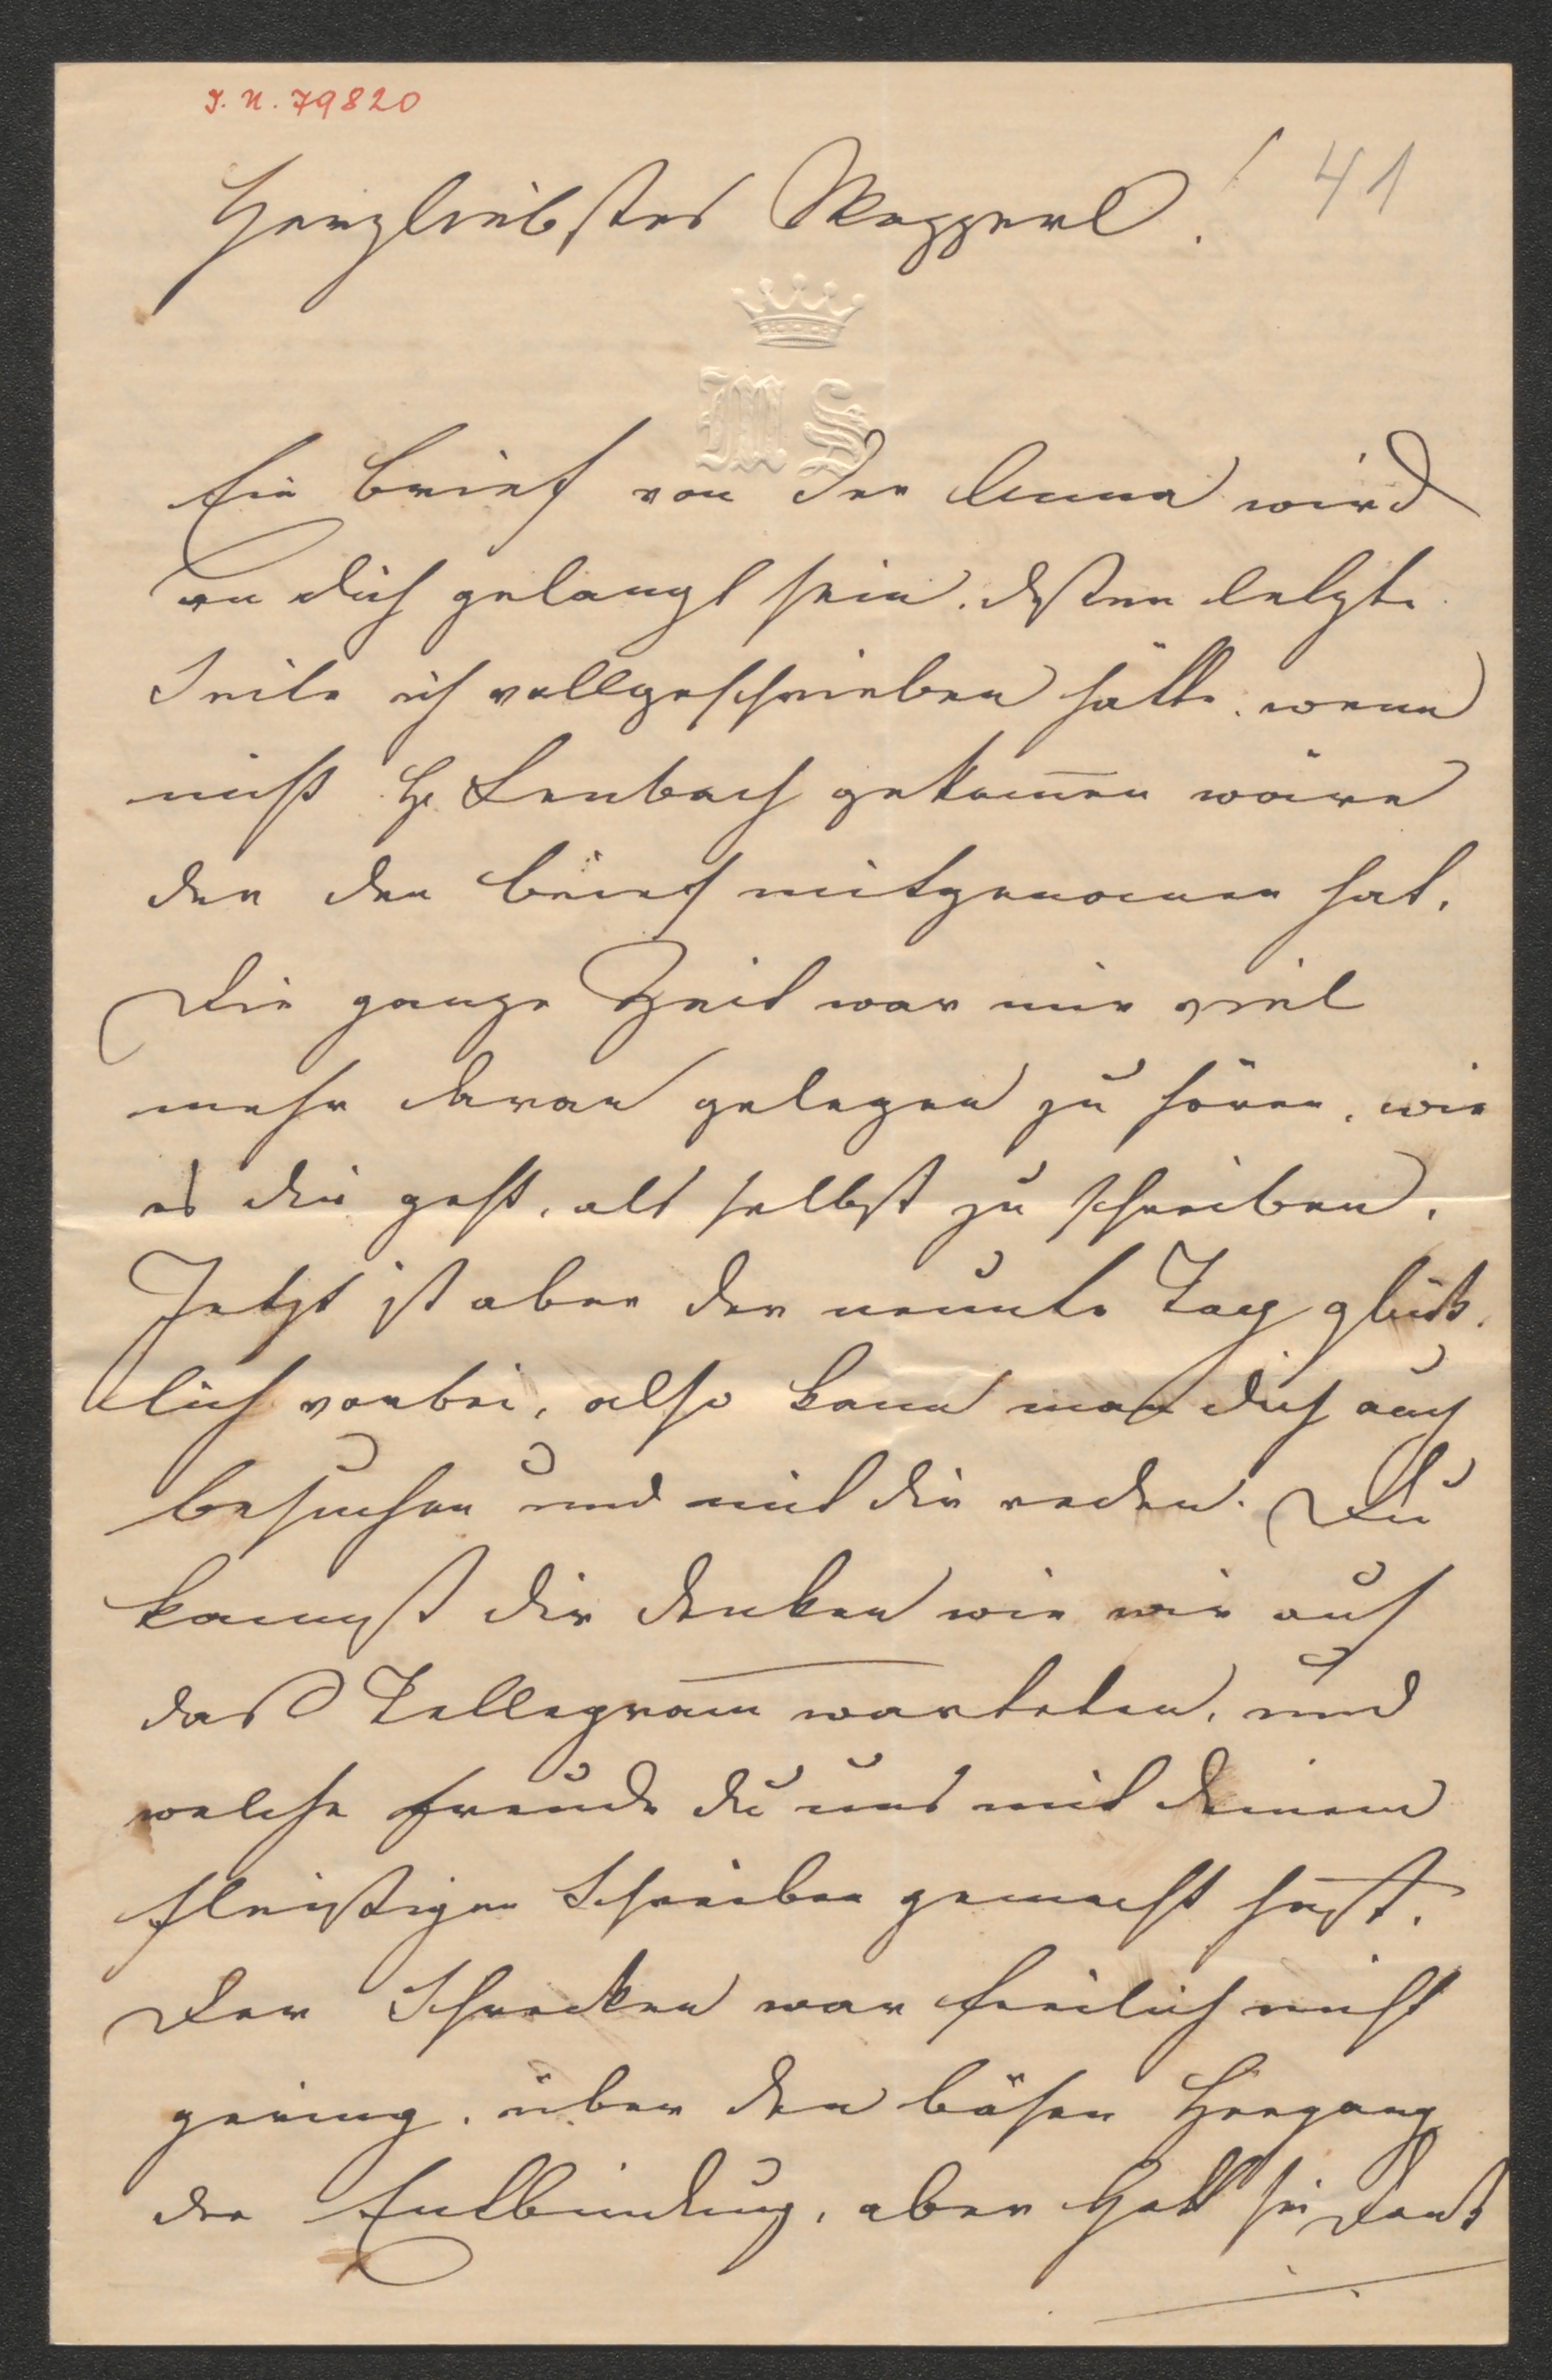 I. N. 79820
41
Herzliebstes Mazzerl!
M S
Ein Brief von der Anna wird
an dich gelangt sein, dessen letzte
Seite ich vollgeschrieben hätte, wenn
nicht H. Lenbach gekom̅en wäre
der den Brief mitgenommen hat.
Die ganze Zeit war mir viel
mehr daran gelegen zu hören, wie
es dir geht, als selbst zu schreiben.
Jetzt ist aber der neunte Tag glück-
lich vorbei, also kann man dich auch
besuchen und mit dir reden. Du
kannst dir denken wie wir auf
daß Tellegram̅ warteten, und
welche Freude du uns mit deinem
fleißigen Schreiben gemacht hast.
Der Schrecken war freilich nicht
gering, über den bösen Hergang
der Entbindung, aber Gott sei Dank